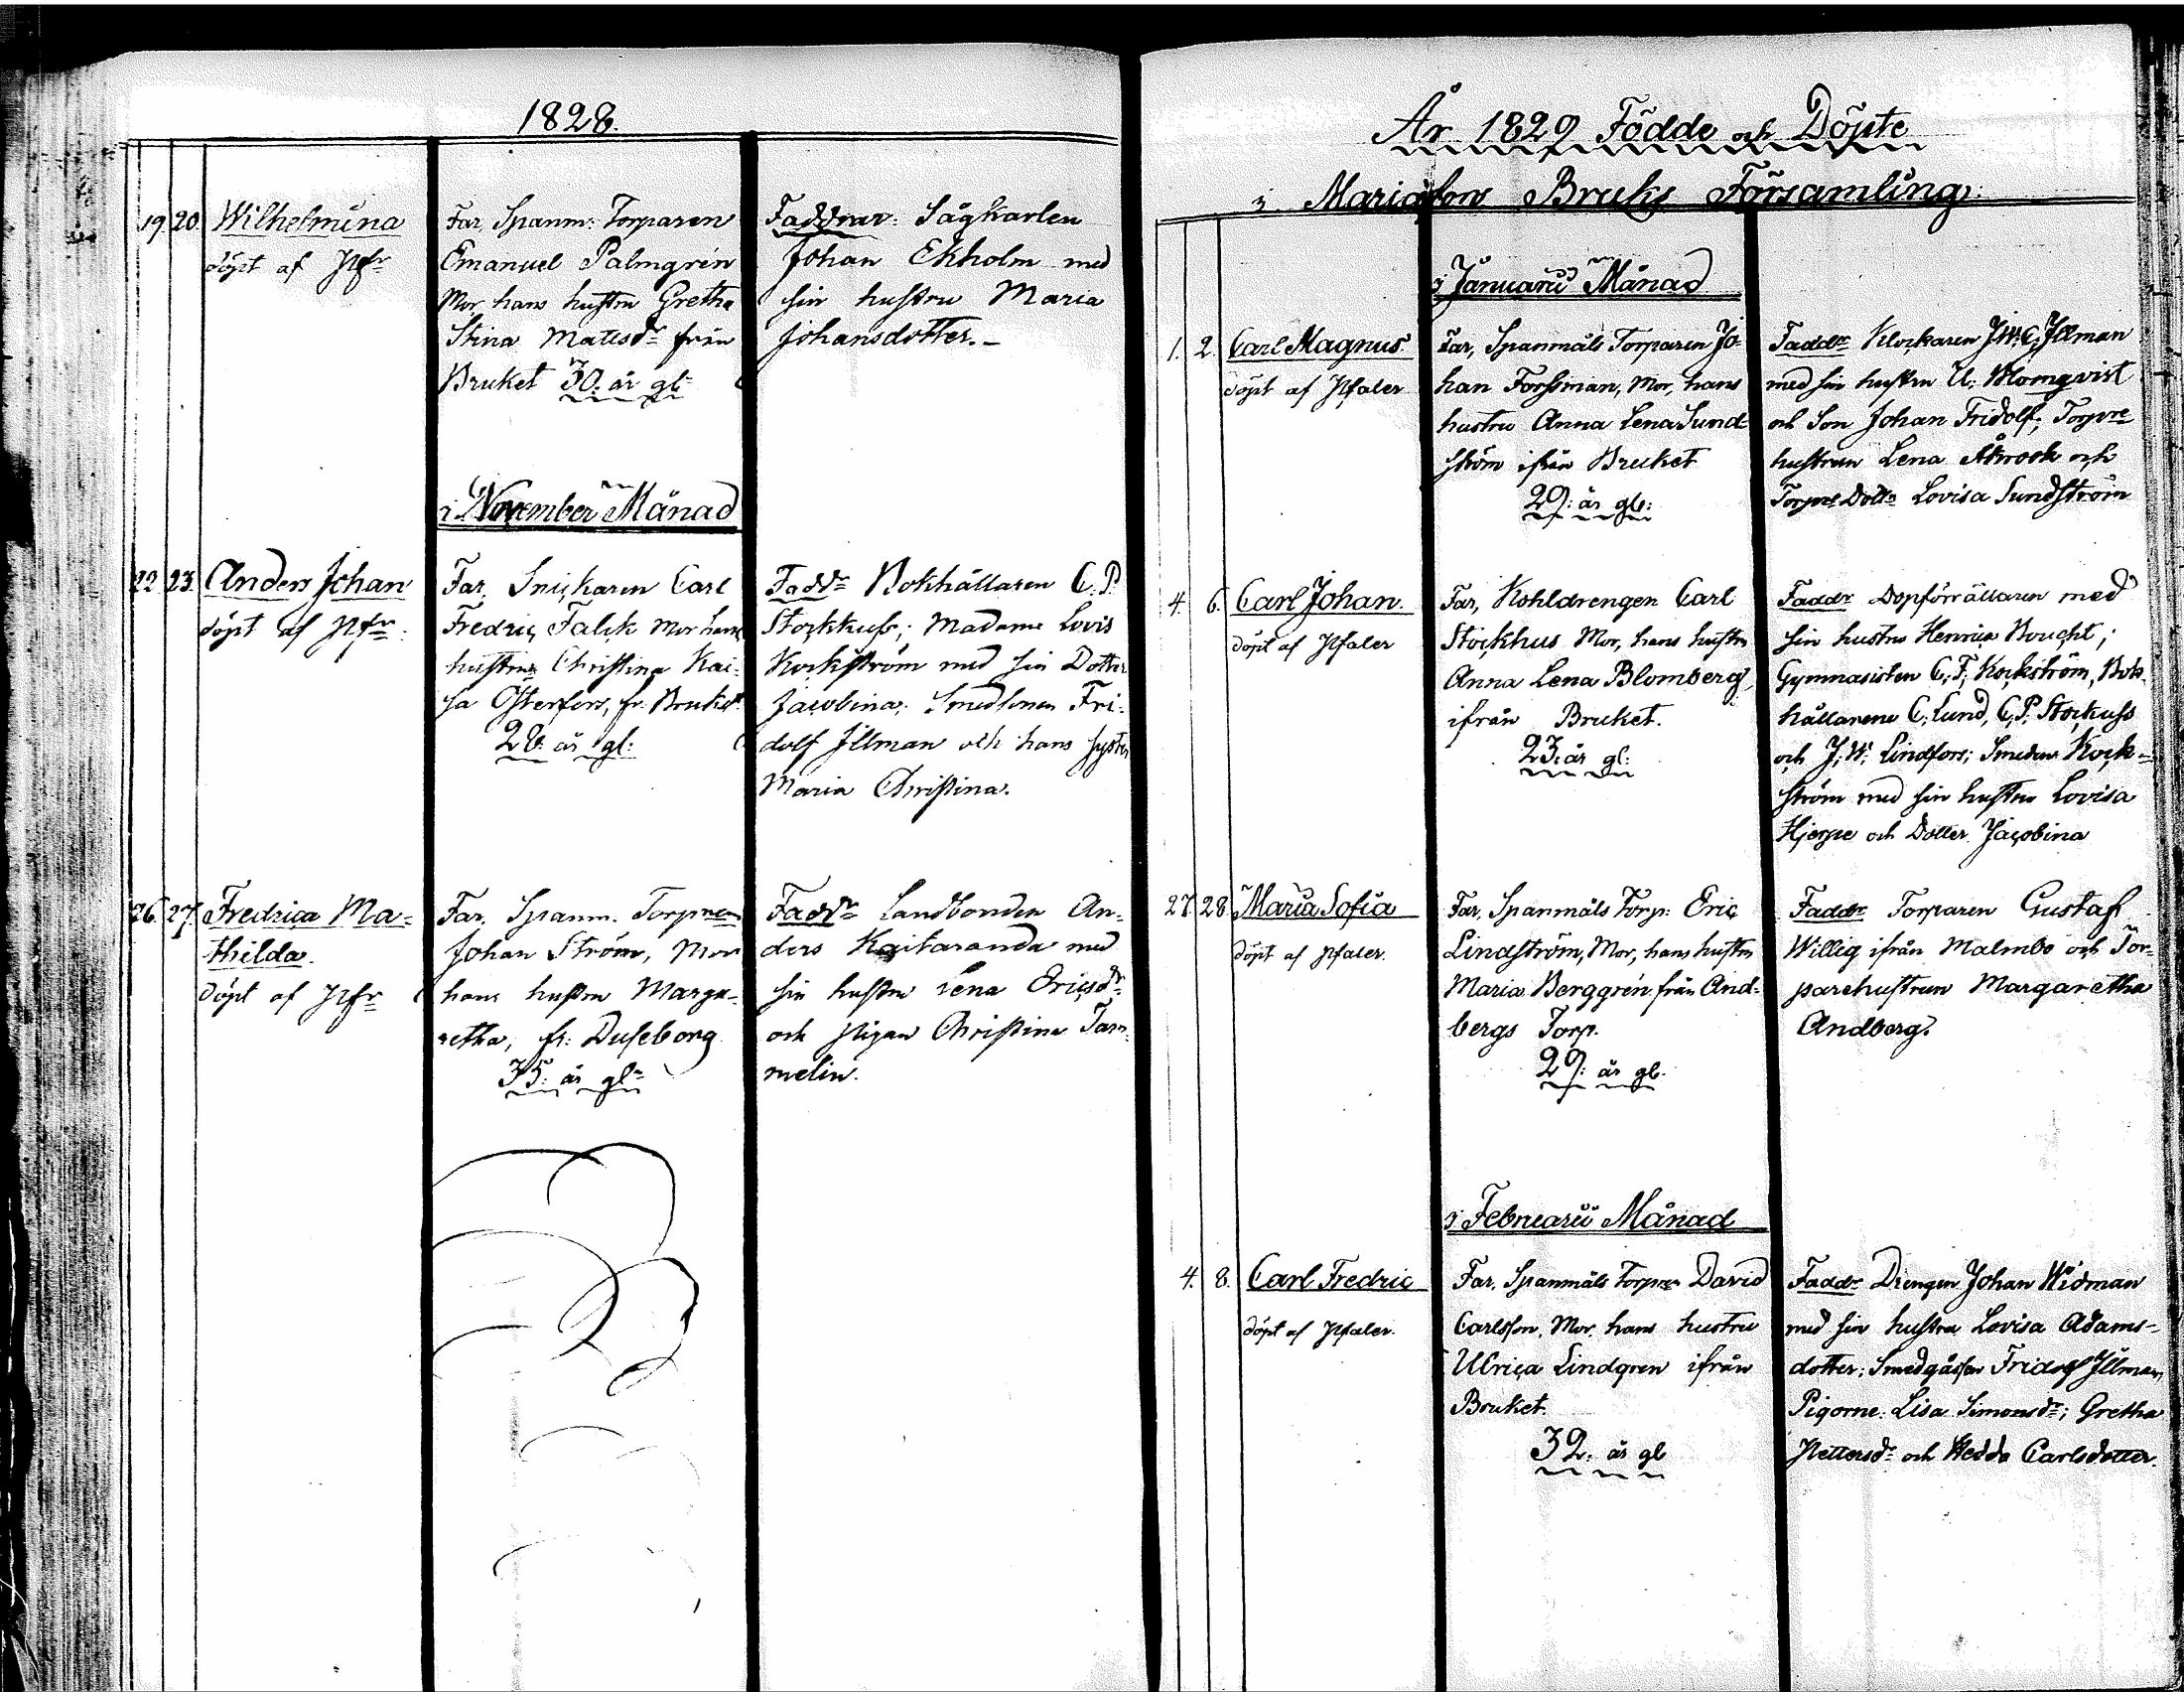 1828.
19. 20. Wilhelmina
döpt af Pfr
Far, Spanm: Torparen
Emanuel Palmgrén
Mor hans hustru Gretha
Stina Mattsdr från
Bruket 30: år gl:
Faddrar: Sågkarlen
Johan Ekholm med
sin hustru Maria
Johansdotter.
i November Månad
22. 23. Anders Johan
döpt af Pfr.
Far, Snickaren Carl
Fredric Falck Mor hans
hustru Christina Kai-
sa Österfors, fr: Bruket
28: år gl:
Faddr Bokhållaren C. P.
Stockkuss; Madame Lovis
Kockström med sin Dotter
Jacobina; Smedsonen Fri-
dolf Illman och hans syster
Maria Christina.
26. 27. Fredrica Ma-
thilda.
döpt af Pfr
Far, Spanm. Torparen
Johan Ström, Mor
hans hustru Marga-
retha, fr: Duseborg
35: år gl:
Faddr Landbonden An-
ders Kaitaranda med
sin hustru Lena Ericsdr
och Pigan Christina Tam-
melin.
År 1829 Födde och Döpte
i Mariæfors Bruks Församling.
i Januarii Månad
1. 2. Carl Magnus
döpt af Pfaler
Far, Spanmåls Torparen Jo-
han Forssman, Mor, hans
hustru Anna Lena Sund-
ström ifrån Bruket
29: år gl:
Faddr Klockaren J.W.C. Illman
med sin hustru U. Blomqvist
och Son Johan Fridolf; Torpre
hustrun Lena Åkrook och
Torpre Dottr Lovisa Sundström
4. 6. Carl Johan.
döpt af Pfaler
Far, Kohldrengen Carl
Stockhus Mor, hans hustru
Anna Lena Blomberg,
ifrån Bruket.
23: år gl:
Faddr Dopförrättaren med
sin hustru Henrica Bought;
Gymnasisten C. F. Kockström, Bok-
hållarene C: Lund, C.P. Stockuss
och J: W: Lindfors; Smeden Kock-
ström med sin hustru Lovisa
Hjerpe och Dotter Jacobina
27. 28. Maria Sofia
döpt af Pfaler.
Far, Spanmåls Torp: Eric
Lindström, Mor, hans hustru
Maria Berggrén från And-
bergs Torp.
29: år gl.
Faddr Torparen Gustaf
Willig ifrån Malmbo och Tor-
parehustrun Margaretha
Andberg.
i Februarii Månad
4. 8. Carl Fredric
döpt af Pfaler.
Far, Spanmåls Torpren David
Carlsson, Mor, hans hustru
Ulrica Lindgren ifrån
Bruket.
32: år gl
Faddr Drengen Johan Widman
med sin hustru Lovisa Adams-
dotter; Smedgåssen Fridolf Illman,
Pigorne: Lisa Simonsdr; Gretha
Pettersdr och Hedda Carlsdotter.